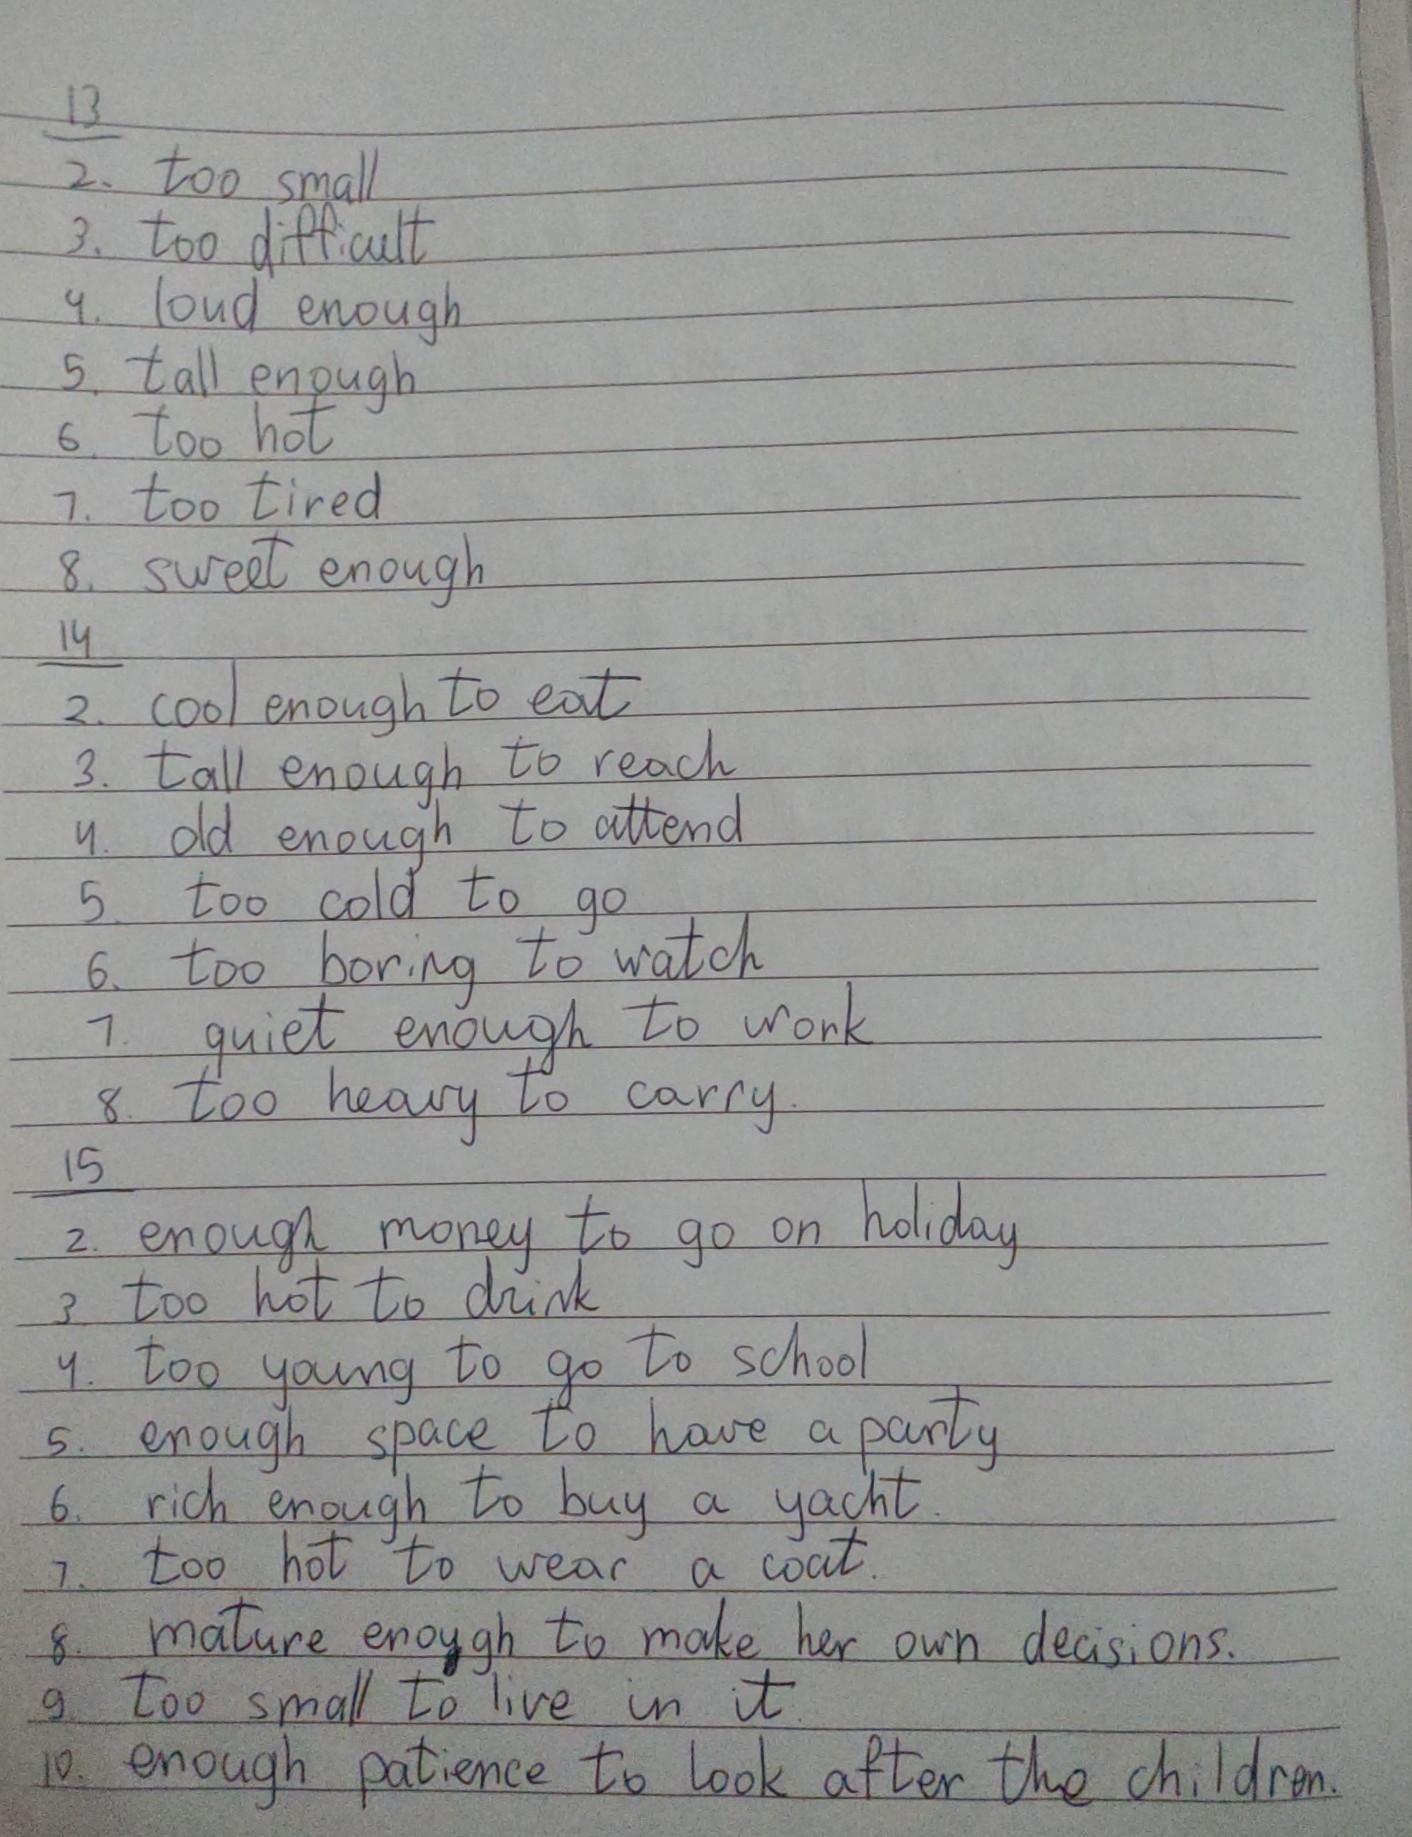 13
2. too small
3. too difficult
4. loud enough
5. tall enough
6. too hot
7. too tired
8. sweet enough
14
2. cool enough to eat
3. tall enough to reach
4. old enough to attend
5. too cold to go
6. too boring to watch
7. quiet enough to work
8. too heavy to carry.
15
2. enough money to go on holiday
3 too hot to drink
4. too young to go to school
5. enough space to have a party
6. rich enough to buy a yacht.
7. too hot to wear a coat.
8. mature enough to make her own decisions.
9. too small to live in it.
10. enough patience to look after the children.